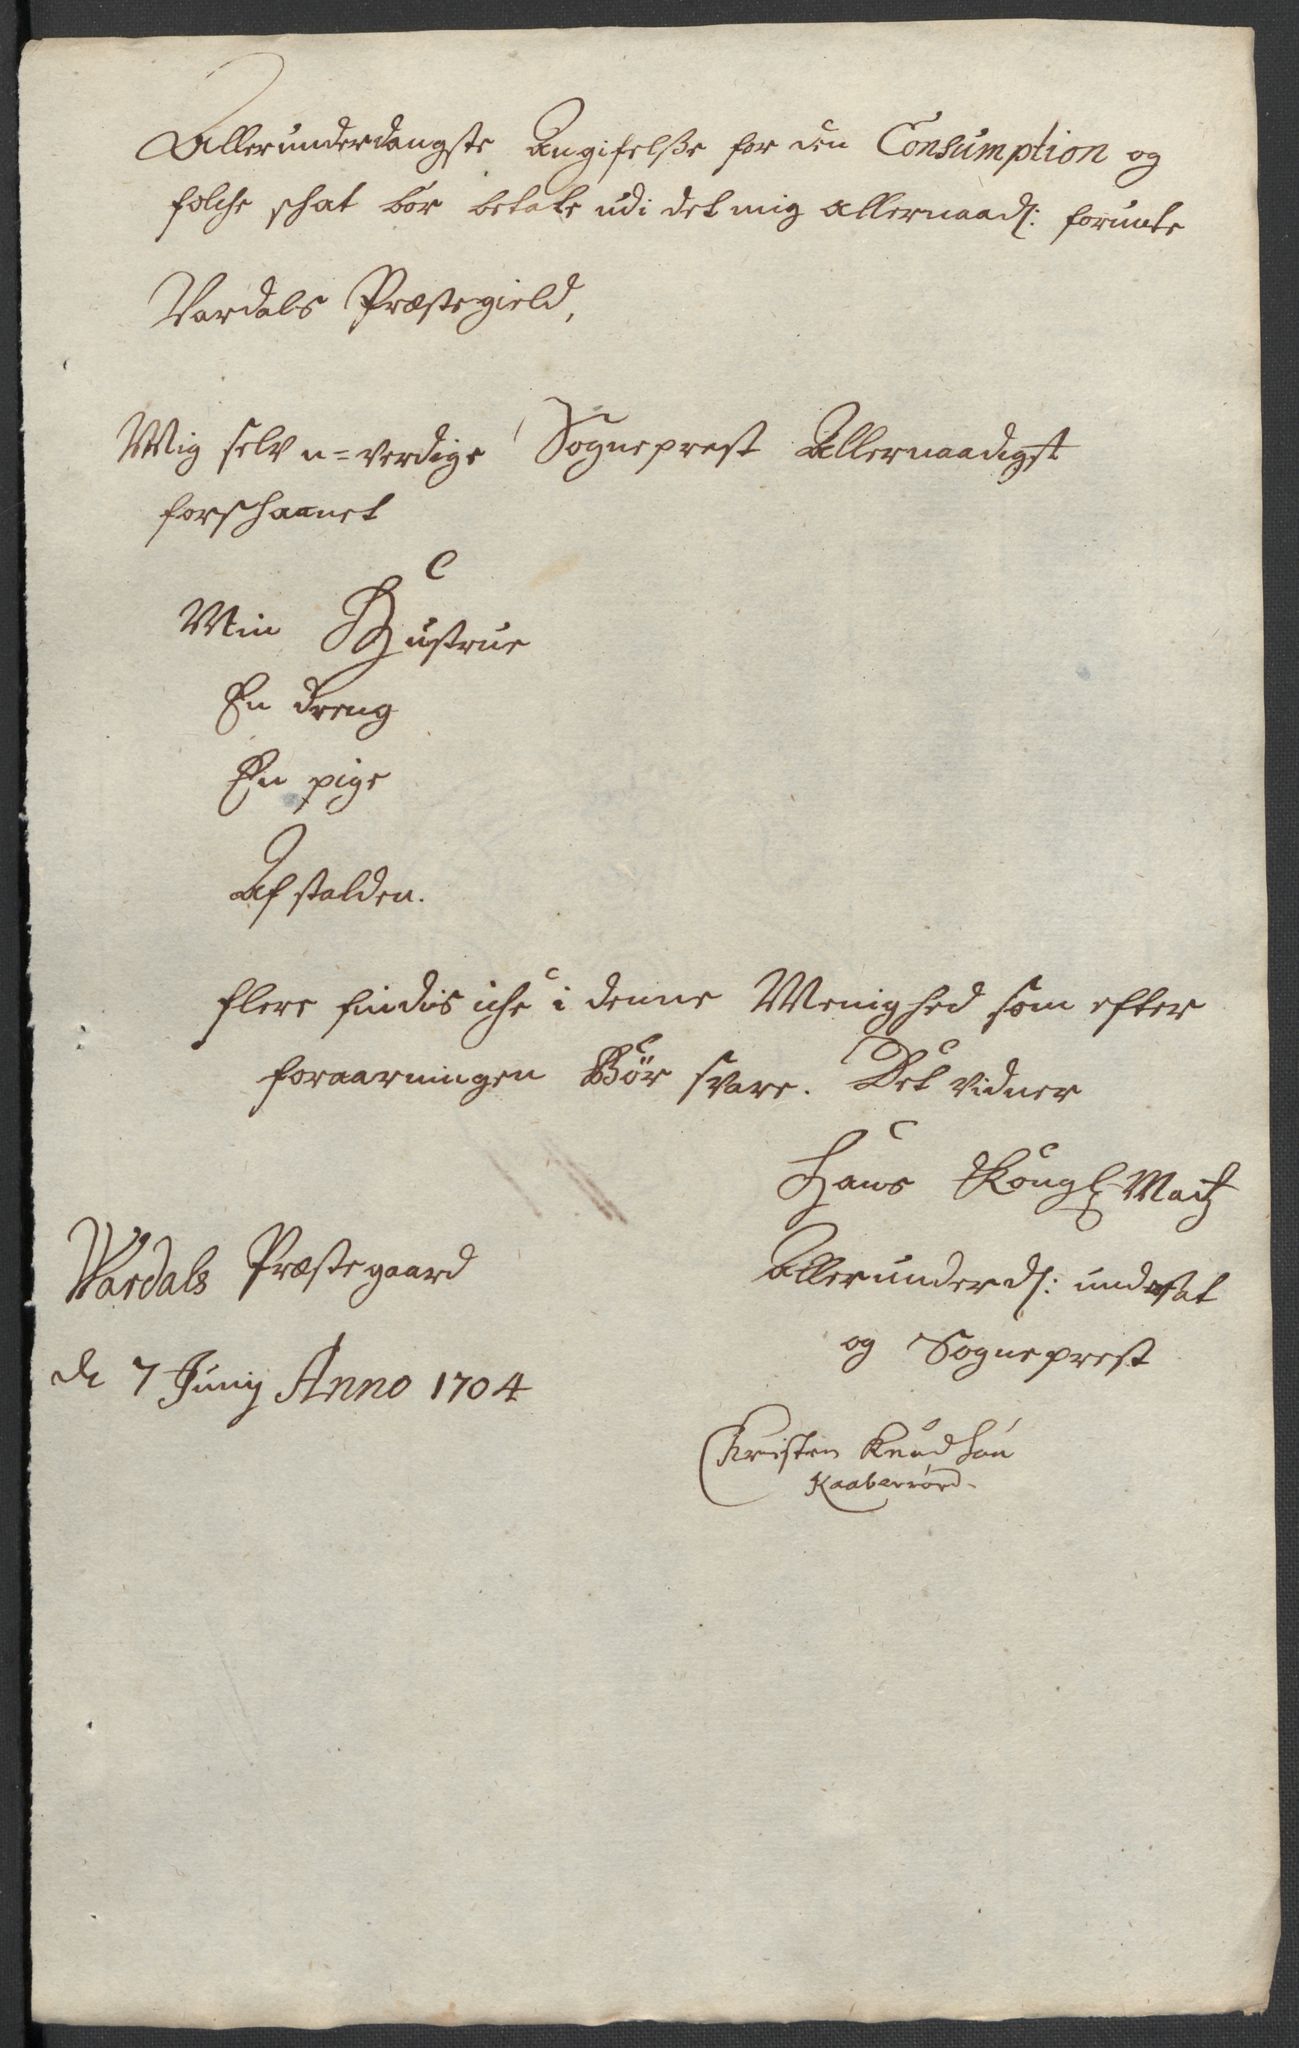 Allerunderdangste Angifelsße for den Consumption og
folche schat bør betale udi det mig allernaads: forunte
Vardals Præstegield,
Mig selv u=verdige Sogneprest Allernaadigst
forschaanet
Min Hustrue
En dreng
En pige
Af stalden.
flere findis iche i denne Menighed som efter
foraarningen Bør svare. Det vidner
Hans Kongl Maitz
Allerunderds: undersat
og Sogneprest
Wardals Præstegaard
de 7 Junij Anno 1704
Christen Knudsøn